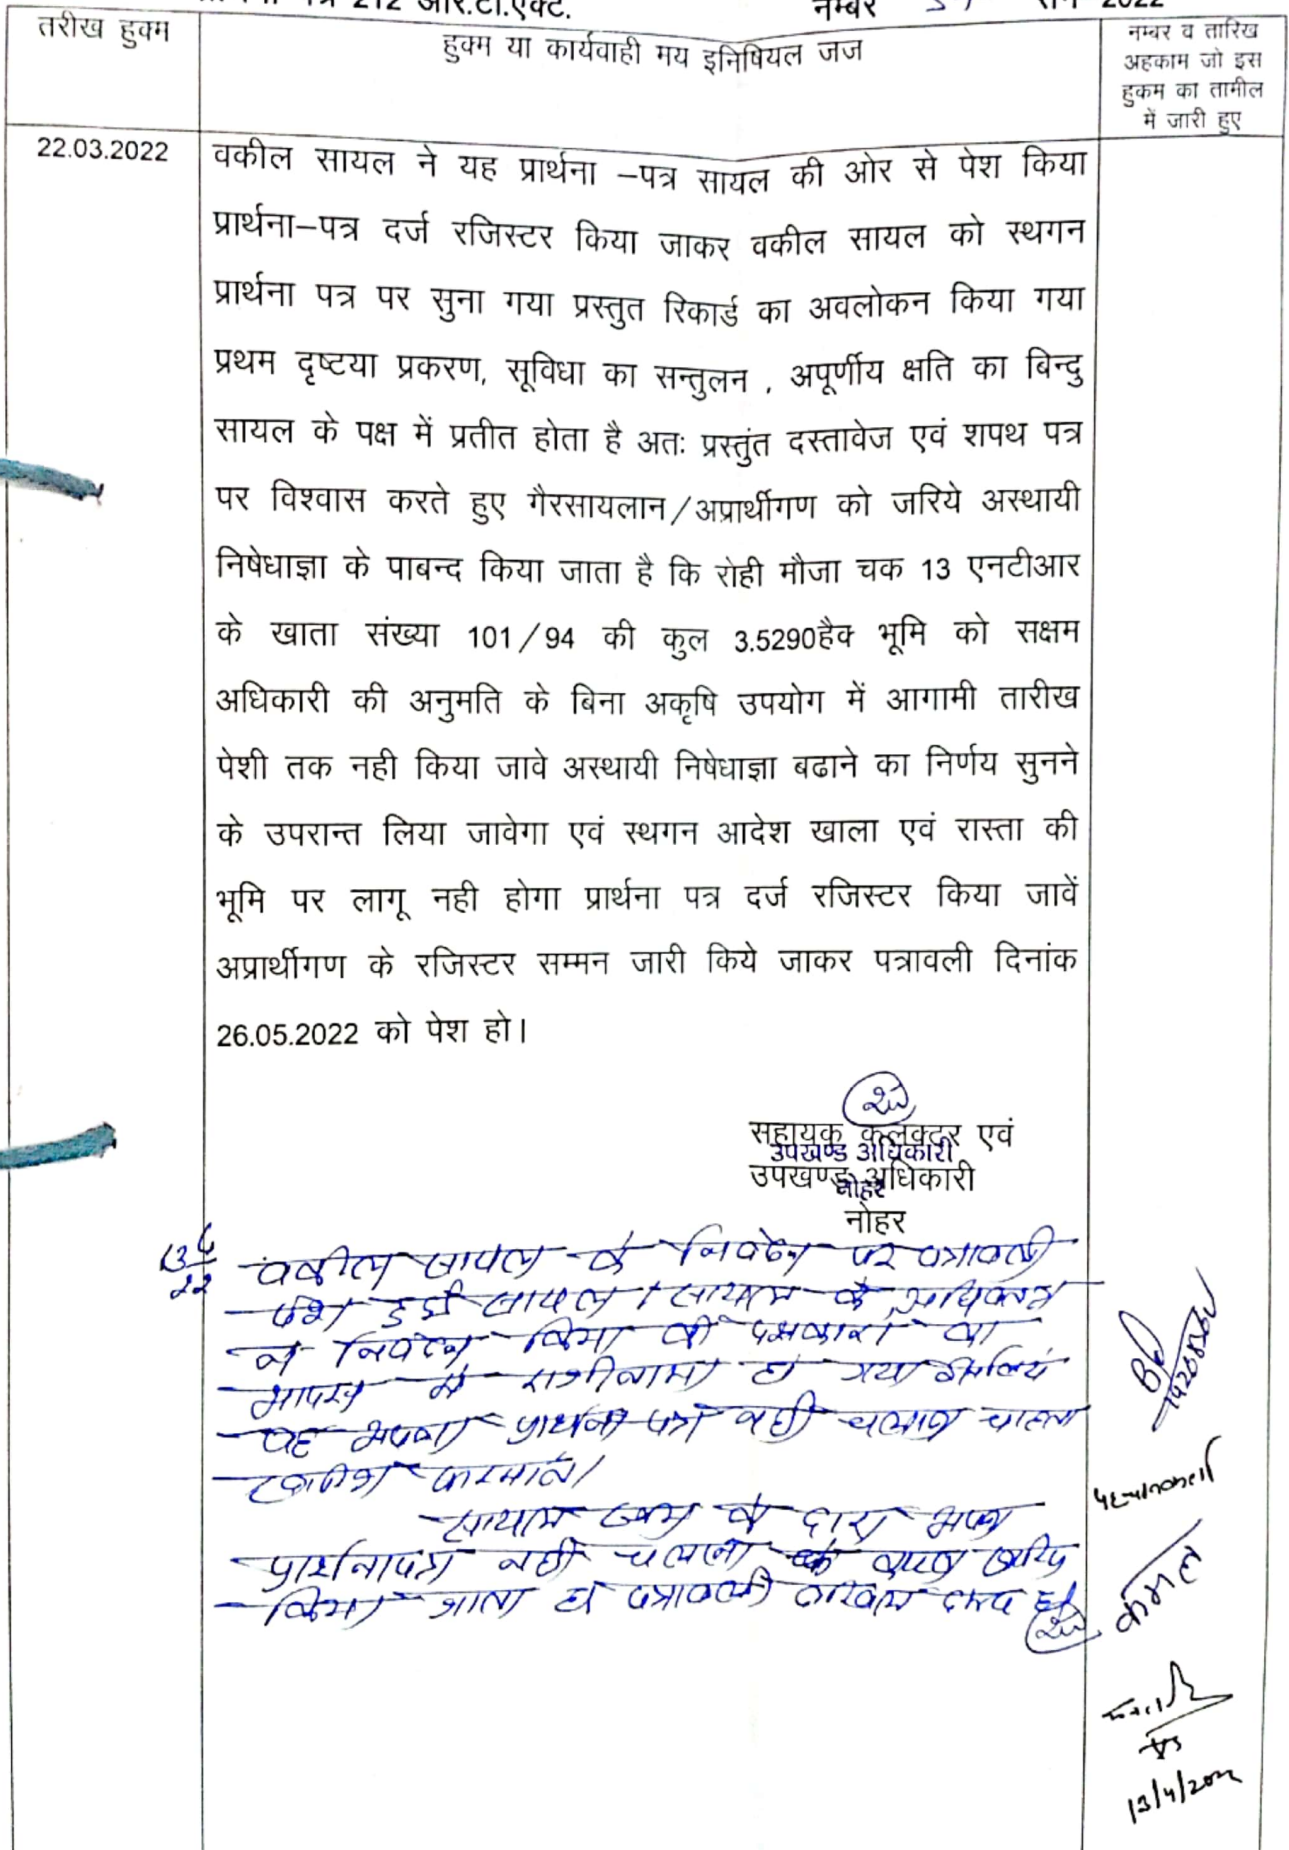 पत्र 212 आर.टी.एक्ट. नम्बर सन 2022
तरीख हुक्म
हुक्म या कार्यवाही मय इनिषियल जज
नम्बर व तारिख
अहकाम जो इस
हुकम का तामील
में जारी हुए
22.03.2022
वकील सायल ने यह प्रार्थना –पत्र सायल की ओर से पेश किया
प्रार्थना–पत्र दर्ज रजिस्टर किया जाकर वकील सायल को स्थगन
प्रार्थना पत्र पर सुना गया प्रस्तुत रिकार्ड का अवलोकन किया गया
प्रथम दृष्टया प्रकरण, सूविधा का सन्तुलन , अपूर्णीय क्षति का बिन्दु
सायल के पक्ष में प्रतीत होता है अतः प्रस्तुंत दस्तावेज एवं शपथ पत्र
पर विश्वास करते हुए गैरसायलान/अप्रार्थीगण को जरिये अस्थायी
निषेधाज्ञा के पाबन्द किया जाता है कि रोही मौजा चक 13 एनटीआर
के खाता संख्या 101/94 की कुल 3.5290हैक भूमि को सक्षम
अधिकारी की अनुमति के बिना अकृषि उपयोग में आगामी तारीख
पेशी तक नही किया जावे अस्थायी निषेधाज्ञा बढाने का निर्णय सुनने
के उपरान्त लिया जावेगा एवं स्थगन आदेश खाला एवं रास्ता की
भूमि पर लागू नही होगा प्रार्थना पत्र दर्ज रजिस्टर किया जावें
अप्रार्थीगण के रजिस्टर सम्मन जारी किये जाकर पत्रावली दिनांक
26.05.2022 को पेश हो।
सहायक कलक्टर एवं
उपखण्ड अधिकारी
उपखण्ड अधिकारी
नोहर
नोहर
13/4/22
वकील सायल के निवेदन पर पत्रावली
पेश हुई सायल / सायल के अधिवक्ता
ने निवेदन किया की पक्षकारों का
आपस में राजीनामा हो गया इसलिये
वह अपना प्रार्थना पत्र नही चलाना चाहता
खारीज फरमावें।
सायल के द्वारा अपना
प्रार्थनापत्र नही चलाने के कारण खारिज
किया जाता है पत्रावली दाखिल दफ्तर हो
पहचानकर्ता
कमल
13/4/2022